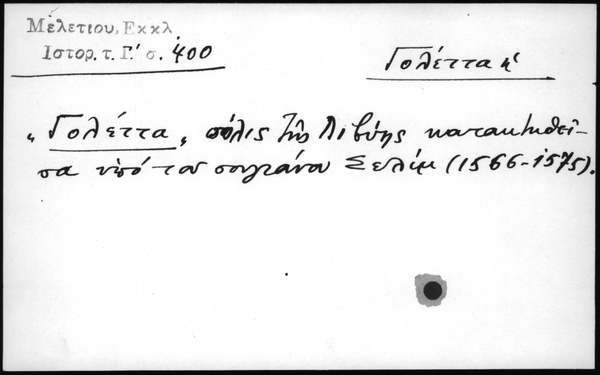 Μελετιου, Εκκλ.
Ιστορ. τ. Γ.' σ. 400
Γολέττα ἡ
"Γολέττα", πόλις τῆς Λιβύης κατακτηθεῖ-
σα ὑπό του σουλτάνου Σελίμ (1566-1575).